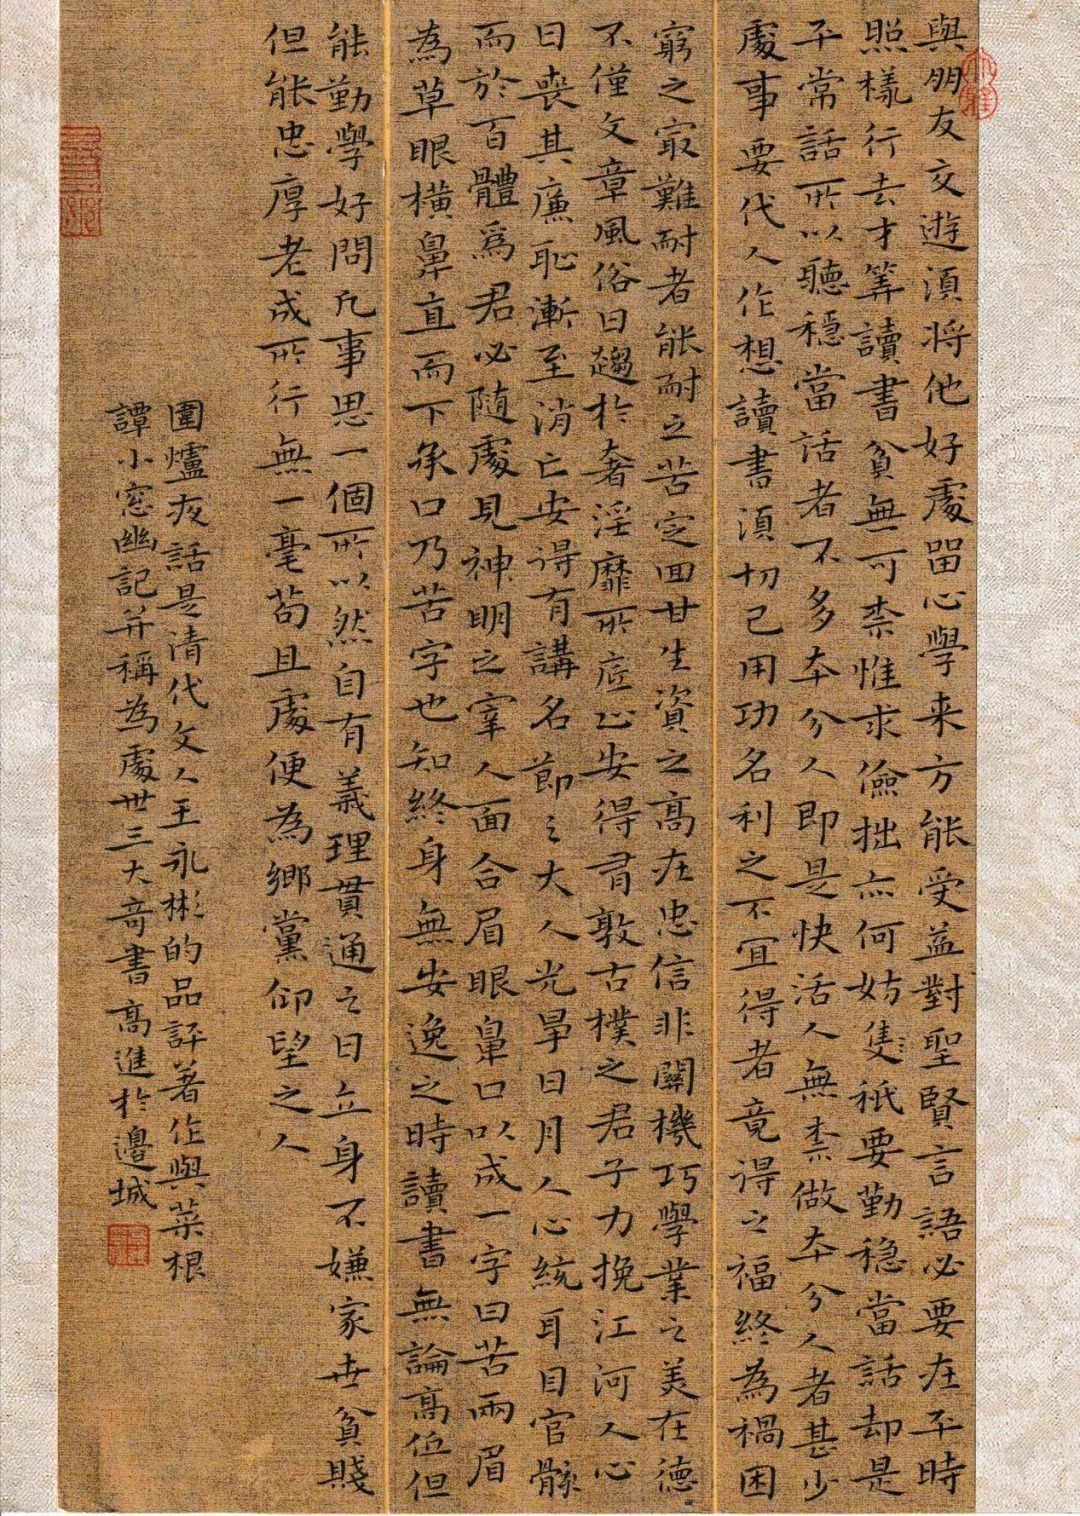 與朋友交遊湏将他好處畱心學来方能受益對聖賢言語必要在平時
照樣行去才筭讀書貧無可柰惟求儉拙亦何妨隻祇要勤稳當話却是
平常話所以聽穩當話者不多本分人即是快活人無柰做本分人者甚少
處事要代人作想讀書湏切己用功名利之不宜得者竟得之福終為禍困
窮之最難耐者能耐之苦定回甘生資之高在忠信非關機巧學業之美在德
不僅文章風俗日趨於奢淫靡所底止安得有敦古樸之君子力挽江河人心
日喪其廉恥漸至消亡安得有講名節之大人光昇日月人心統耳目官骸
而於百體為君必随處見神明之宰人面合眉眼鼻口以成一字曰苦兩眉
為草眼橫鼻直而下承口乃苦字也知終身無安逸之時讀書無論高位但
能勤學好問凡事思一個所以然自有義理貫通之日立身不嫌家世貧賤
但能忠厚老成所行無一毫苟且處便為鄉黨仰望之人
圍爐夜話是清代文人王永彬的品評著作與菜根
譚小窓幽記并稱為處世三大奇書高進於邊城